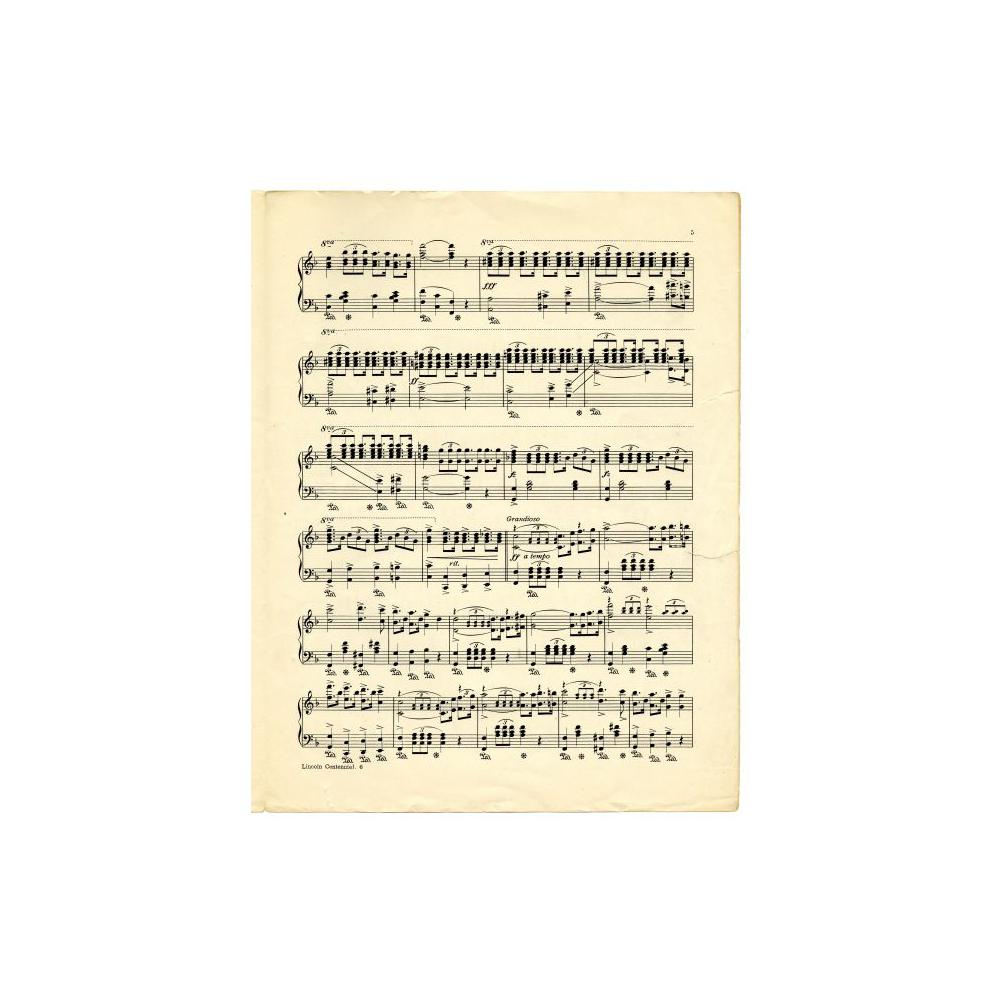 5
8va 8va
fff
8va
ff
8va
8va
Grandioso
ff a tempo
rit.
Lincoln Centennial. 6